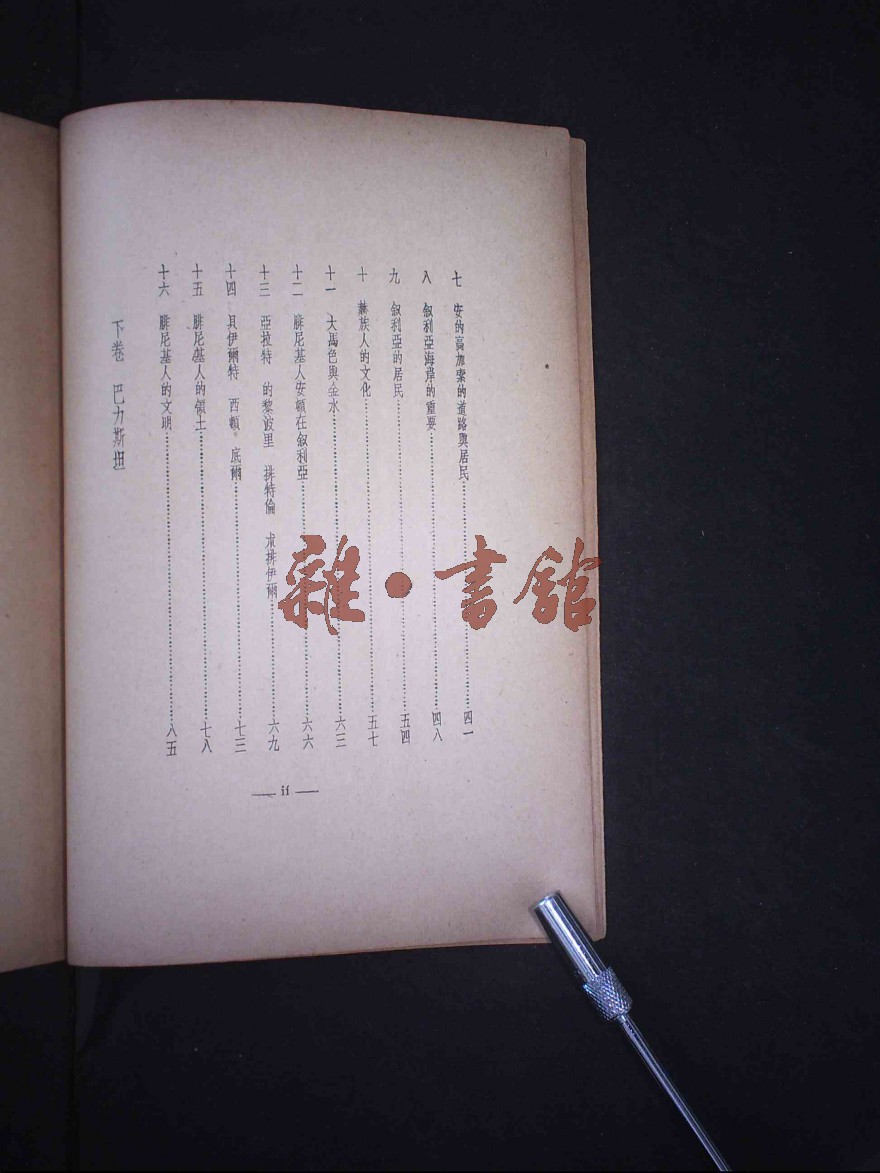 七　安的高加索的道路與居民……四一
八　叙利亞海岸的重要……四八
九　叙利亞的居民……五四
十　赫族人的文化……五七
十一　大馬色與金水……六三
十二　腓尼基人安頓在叙利亞……六六
十三　亞拉特　的黎波里　排特倫　朮排伊爾……六九
十四　具伊爾特　西頓　底爾……七三
十五　腓尼基人的領土……七八
十六　腓尼基人的文明……八五
下卷　巴力斯坦
— ii —
雜・書館